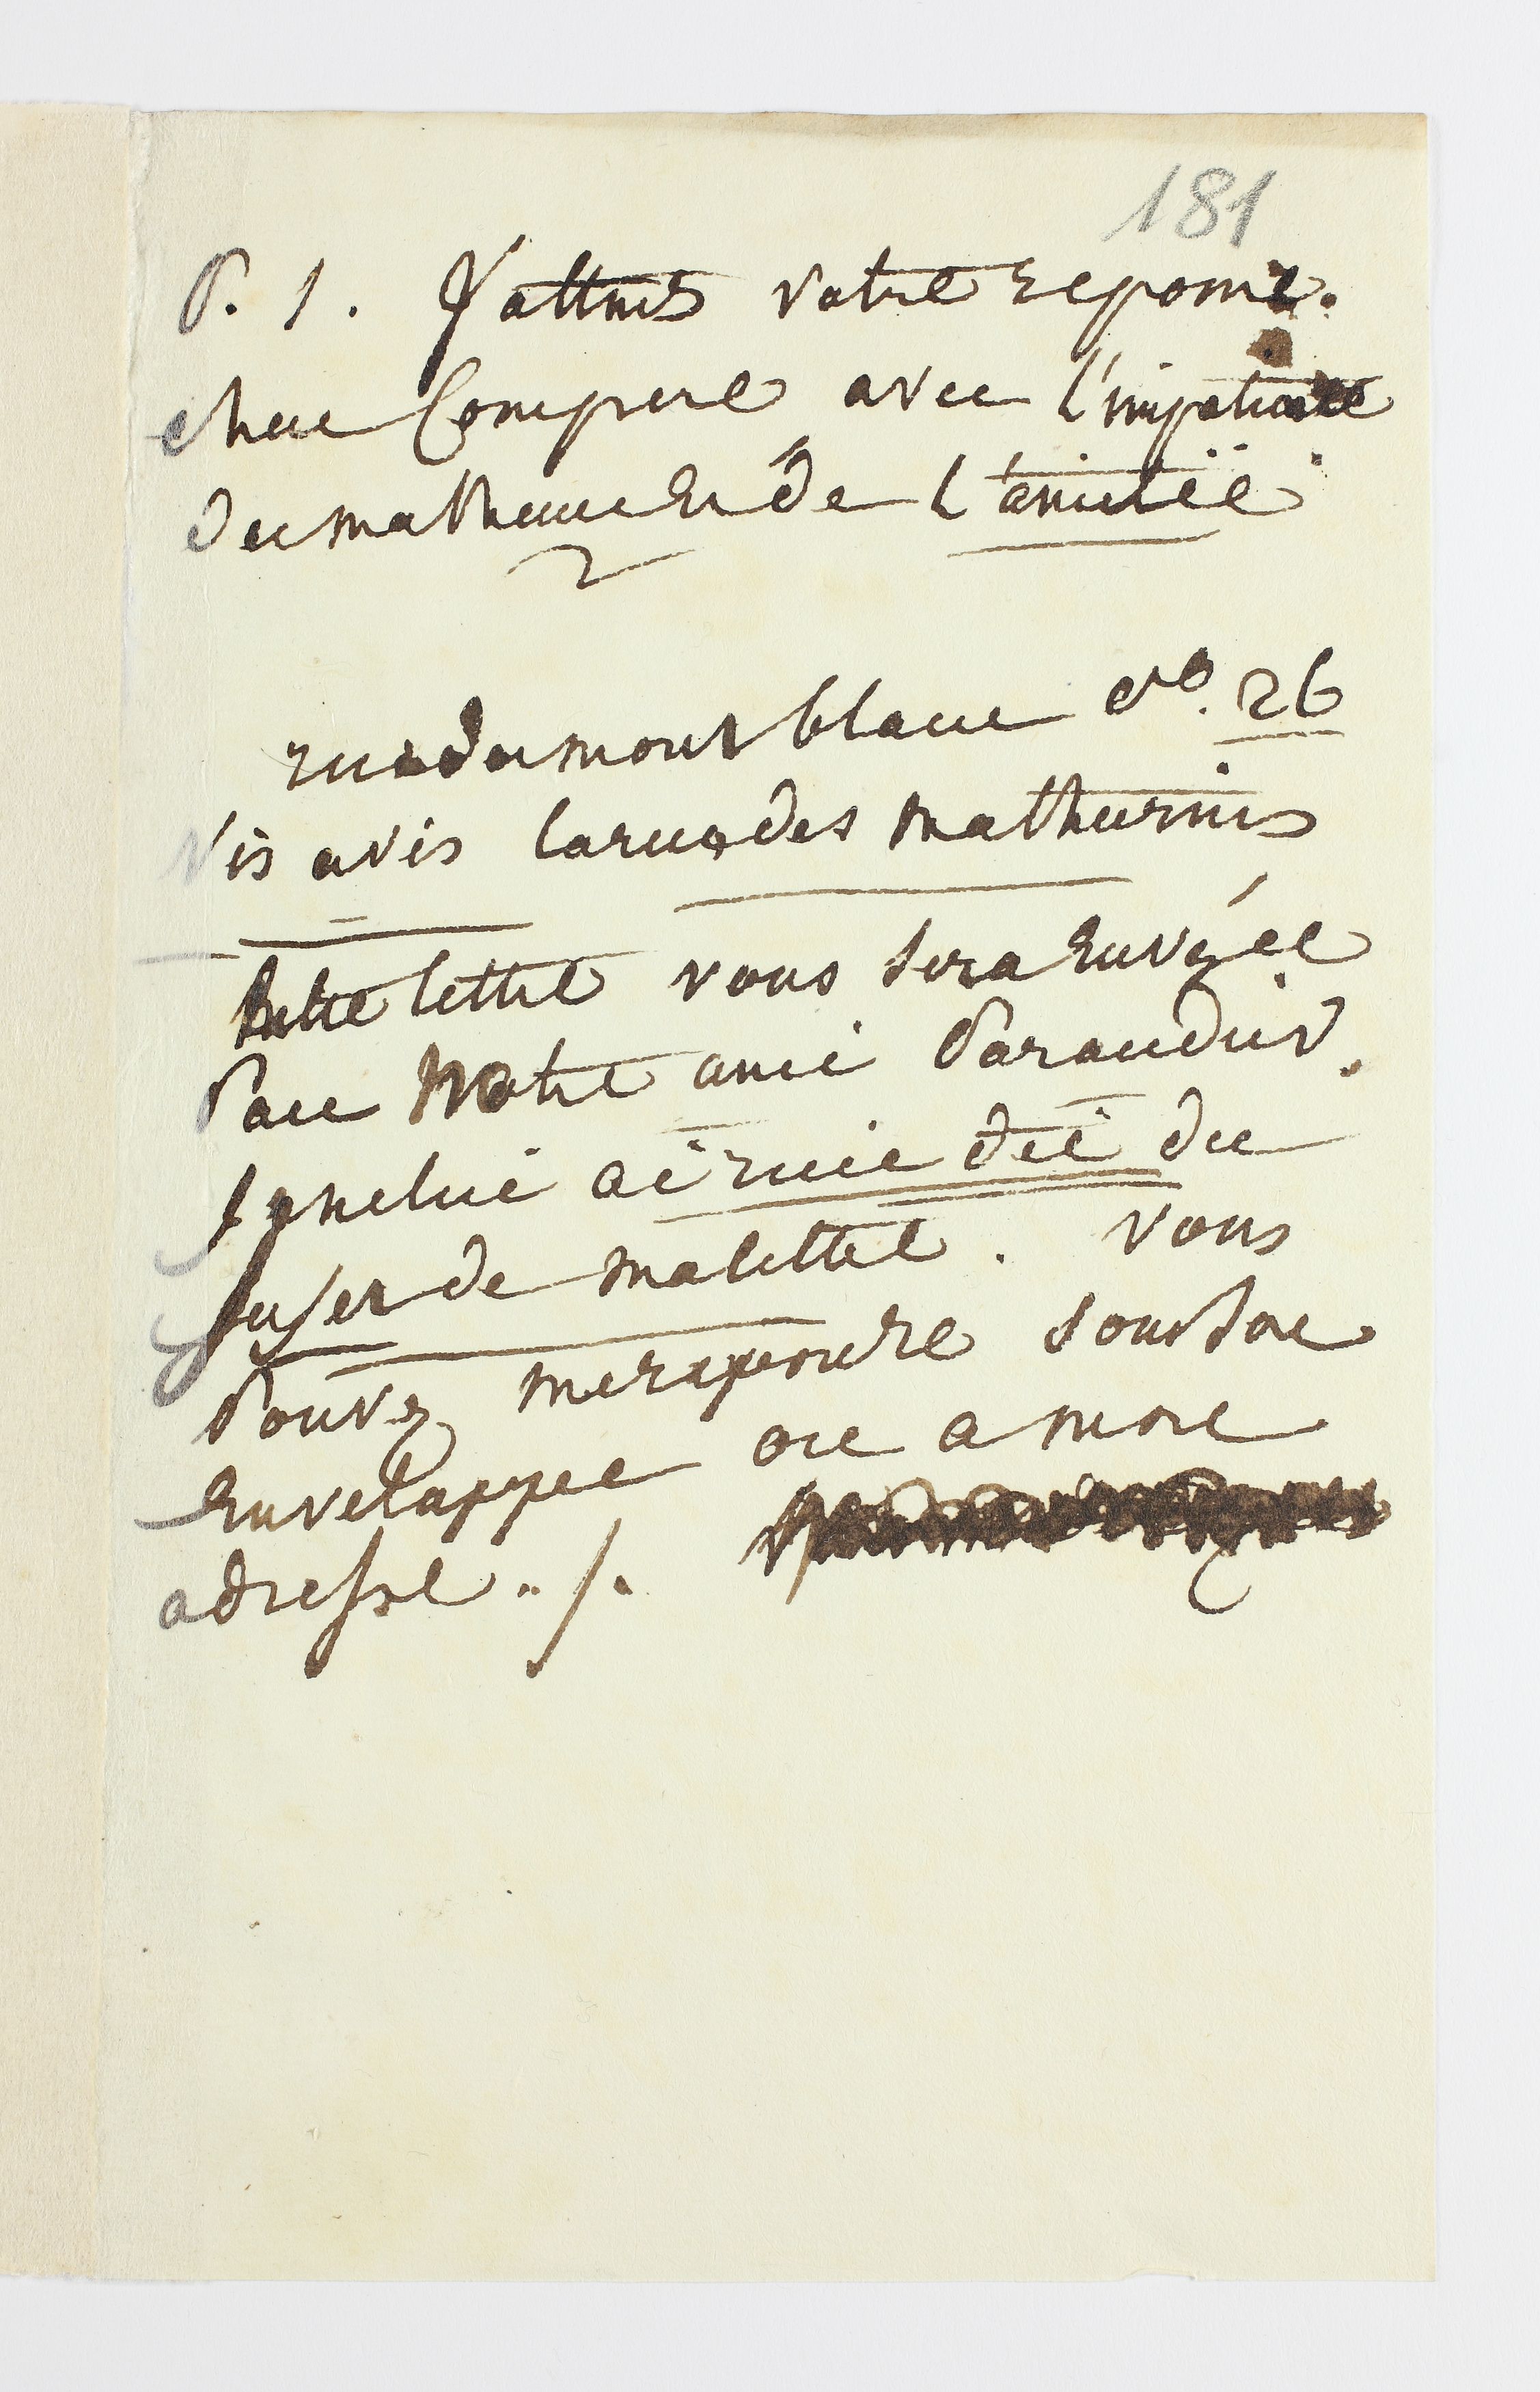 181
P. S. J'attens votre reponse.
cher Compere avec l'impatience
du malheur et de L'amitié
rue du mont blanc No. 26
vis avis la rue des mathurins
Cette lettre vous sera envoyée
Par Notre ami Parandier.
Je ne lui ai rien dit du
sujet de ma lettre. vous
Pouvez me repondre sous son
enveloppe ou a mon
adresse ./.